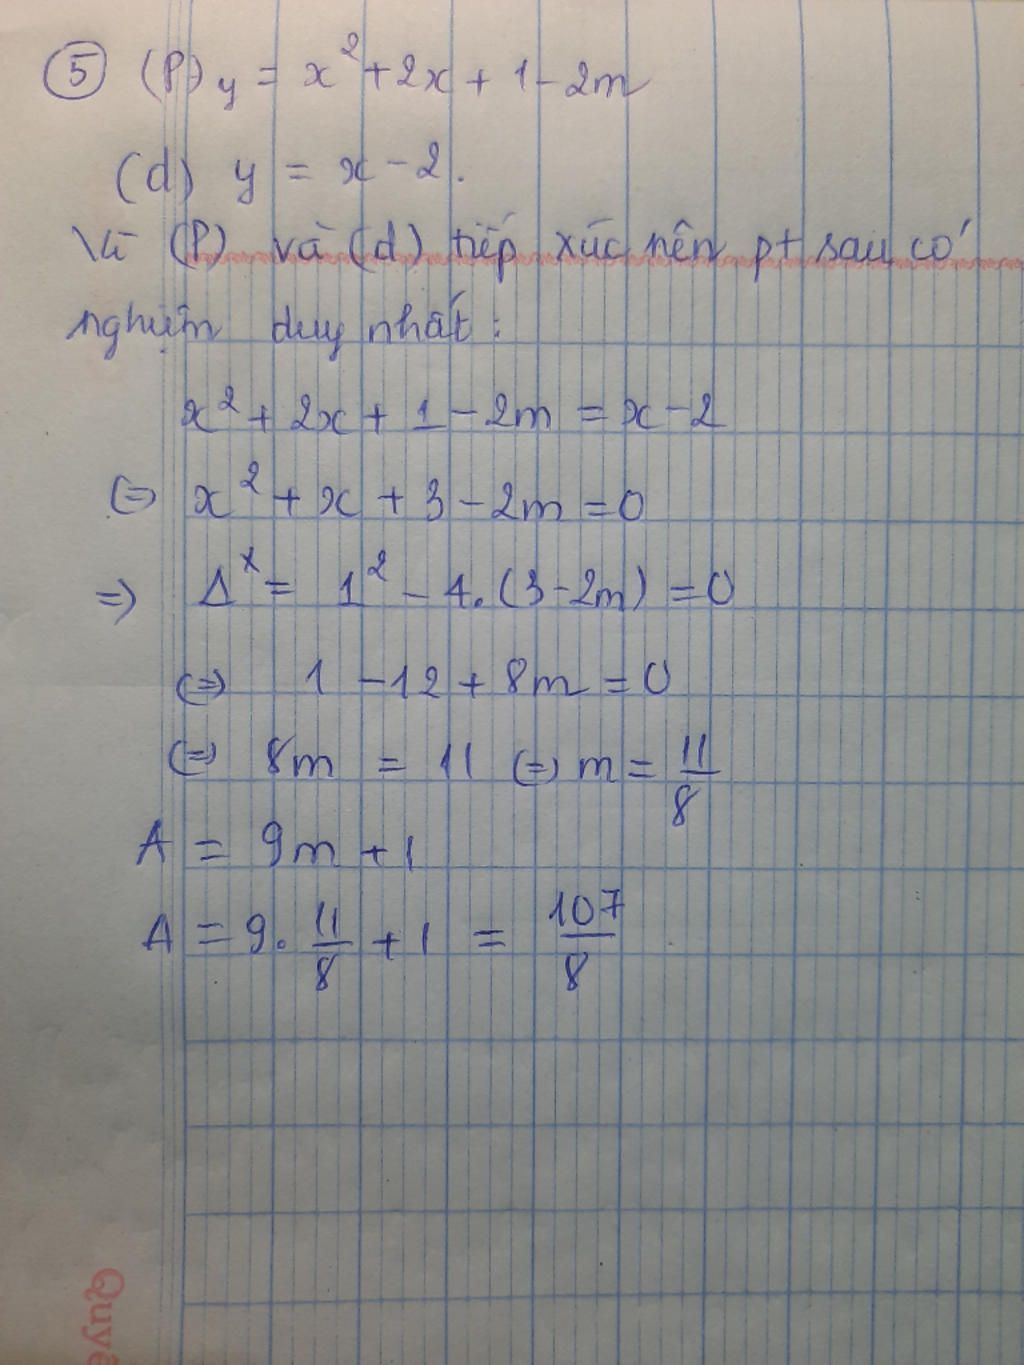 ⑤ (P) y = x² + 2x + 1 - 2m
(d) y = x - 2.
Vì (P) và (d) tiếp xúc nên pt sau có
nghiệm duy nhất :
x² + 2x + 1 - 2m = x - 2
(=) x² + x + 3 - 2m = 0
=) Δˣ = 1² - 4.(3 - 2m) = 0
(=) 1 - 12 + 8m = 0
(=) 8m = 11 (=) m = 11/8
A = 9m + 1
A = 9. 11/8 + 1 = 107/8
Quyê